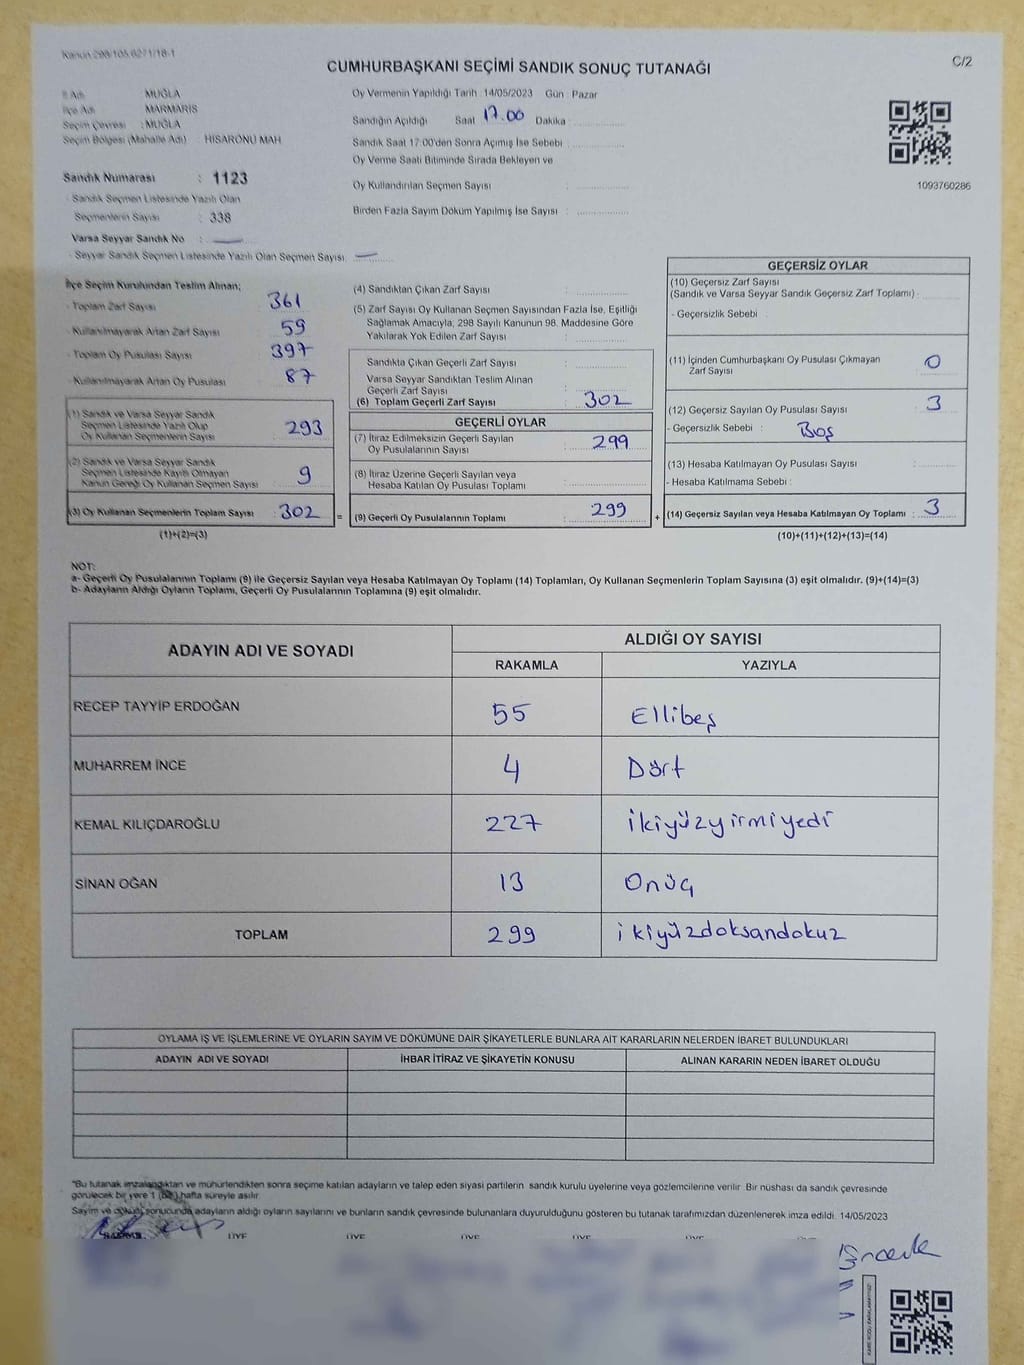 Kanun 298/105.6271/18-1
C/2
CUMHURBAŞKANI SEÇİMİ SANDIK SONUÇ TUTANAĞI
İl Adı MUĞLA
İlçe Adı MARMARİS
Seçim Çevresi : MUĞLA
Seçim Bölgesi (Mahalle Adı) HİSARÖNÜ MAH
Sandık Numarası : 1123
- Sandık Seçmen Listesinde Yazılı Olan
Seçmenlerin Sayısı : 338
Varsa Seyyar Sandık No : —
- Seyyar Sandık Seçmen Listesinde Yazılı Olan Seçmen Sayısı: —
Oy Vermenin Yapıldığı Tarih : 14/05/2023 Gün : Pazar
Sandığın Açıldığı Saat 17.00 Dakika :
Sandık Saat 17:00'den Sonra Açımış İse Sebebi :
Oy Verme Saati Bitiminde Sırada Bekleyen ve
Oy Kullandırılan Seçmen Sayısı :
Birden Fazla Sayım Döküm Yapılmış İse Sayısı :
1093760286
İlçe Seçim Kurulundan Teslim Alınan;
- Toplam Zarf Sayısı 361
- Kullanılmayarak Artan Zarf Sayısı 59
- Toplam Oy Pusulası Sayısı 397
- Kullanılmayarak Artan Oy Pusulası 87
(1) Sandık ve Varsa Seyyar Sandık
Seçmen Listesinde Yazılı Olup
Oy Kullanan Seçmenlerin Sayısı 293
(2) Sandık ve Varsa Seyyar Sandık
Seçmen Listesinde Kayıtlı Olmayan
Kanun Gereği Oy Kullanan Seçmen Sayısı : 9
(3) Oy Kullanan Seçmenlerin Toplam Sayısı 302
(1)+(2)=(3)
=
(4) Sandıktan Çıkan Zarf Sayısı :
(5) Zarf Sayısı Oy Kullanan Seçmen Sayısından Fazla İse, Eşitliği
Sağlamak Amacıyla, 298 Sayılı Kanunun 98. Maddesine Göre
Yakılarak Yok Edilen Zarf Sayısı :
Sandıkta Çıkan Geçerli Zarf Sayısı :
Varsa Seyyar Sandıktan Teslim Alınan
Geçerli Zarf Sayısı :
(6) Toplam Geçerli Zarf Sayısı : 302
GEÇERLİ OYLAR
(7) İtiraz Edilmeksizin Geçerli Sayılan
Oy Pusulalarının Sayısı : 299
(8) İtiraz Üzerine Geçerli Sayılan veya
Hesaba Katılan Oy Pusulası Toplamı :
(9) Geçerli Oy Pusulalarının Toplamı : 299
+
GEÇERSİZ OYLAR
(10) Geçersiz Zarf Sayısı
(Sandık ve Varsa Seyyar Sandık Geçersiz Zarf Toplamı) :
- Geçersizlik Sebebi :
(11) İçinden Cumhurbaşkanı Oy Pusulası Çıkmayan
Zarf Sayısı : 0
(12) Geçersiz Sayılan Oy Pusulası Sayısı : 3
- Geçersizlik Sebebi : Boş
(13) Hesaba Katılmayan Oy Pusulası Sayısı :
- Hesaba Katılmama Sebebi :
(14) Geçersiz Sayılan veya Hesaba Katılmayan Oy Toplamı : 3
(10)+(11)+(12)+(13)=(14)
NOT:
a- Geçerli Oy Pusulalarının Toplamı (9) ile Geçersiz Sayılan veya Hesaba Katılmayan Oy Toplamı (14) Toplamları, Oy Kullanan Seçmenlerin Toplam Sayısına (3) eşit olmalıdır. (9)+(14)=(3)
b- Adayların Aldığı Oyların Toplamı, Geçerli Oy Pusulalarının Toplamına (9) eşit olmalıdır.
ADAYIN ADI VE SOYADI ALDIĞI OY SAYISI
RAKAMLA YAZIYLA
RECEP TAYYİP ERDOĞAN 55 Ellibeş
MUHARREM İNCE 4 Dört
KEMAL KILIÇDAROĞLU 227 ikiyüzyirmiyedi
SİNAN OĞAN 13 Onüç
TOPLAM 299 ikiyüzdoksandokuz
OYLAMA İŞ VE İŞLEMLERİNE VE OYLARIN SAYIM VE DÖKÜMÜNE DAİR ŞİKAYETLERLE BUNLARA AİT KARARLARIN NELERDEN İBARET BULUNDUKLARI
ADAYIN ADI VE SOYADI İHBAR İTİRAZ VE ŞİKAYETİN KONUSU ALINAN KARARIN NEDEN İBARET OLDUĞU
"Bu tutanak imzalandıktan ve mühürlendikten sonra seçime katılan adayların ve talep eden siyasi partilerin sandık kurulu üyelerine veya gözlemcilerine verilir. Bir nüshası da sandık çevresinde
görülecek bir yere 1 (bir) hafta süreyle asılır.
Sayım ve döküm sonucunda adayların aldığı oyların sayılarını ve bunların sandık çevresinde bulunanlara duyurulduğunu gösteren bu tutanak tarafımızdan düzenlenerek imza edildi. 14/05/2023
ÜYE ÜYE ÜYE ÜYE ÜYE